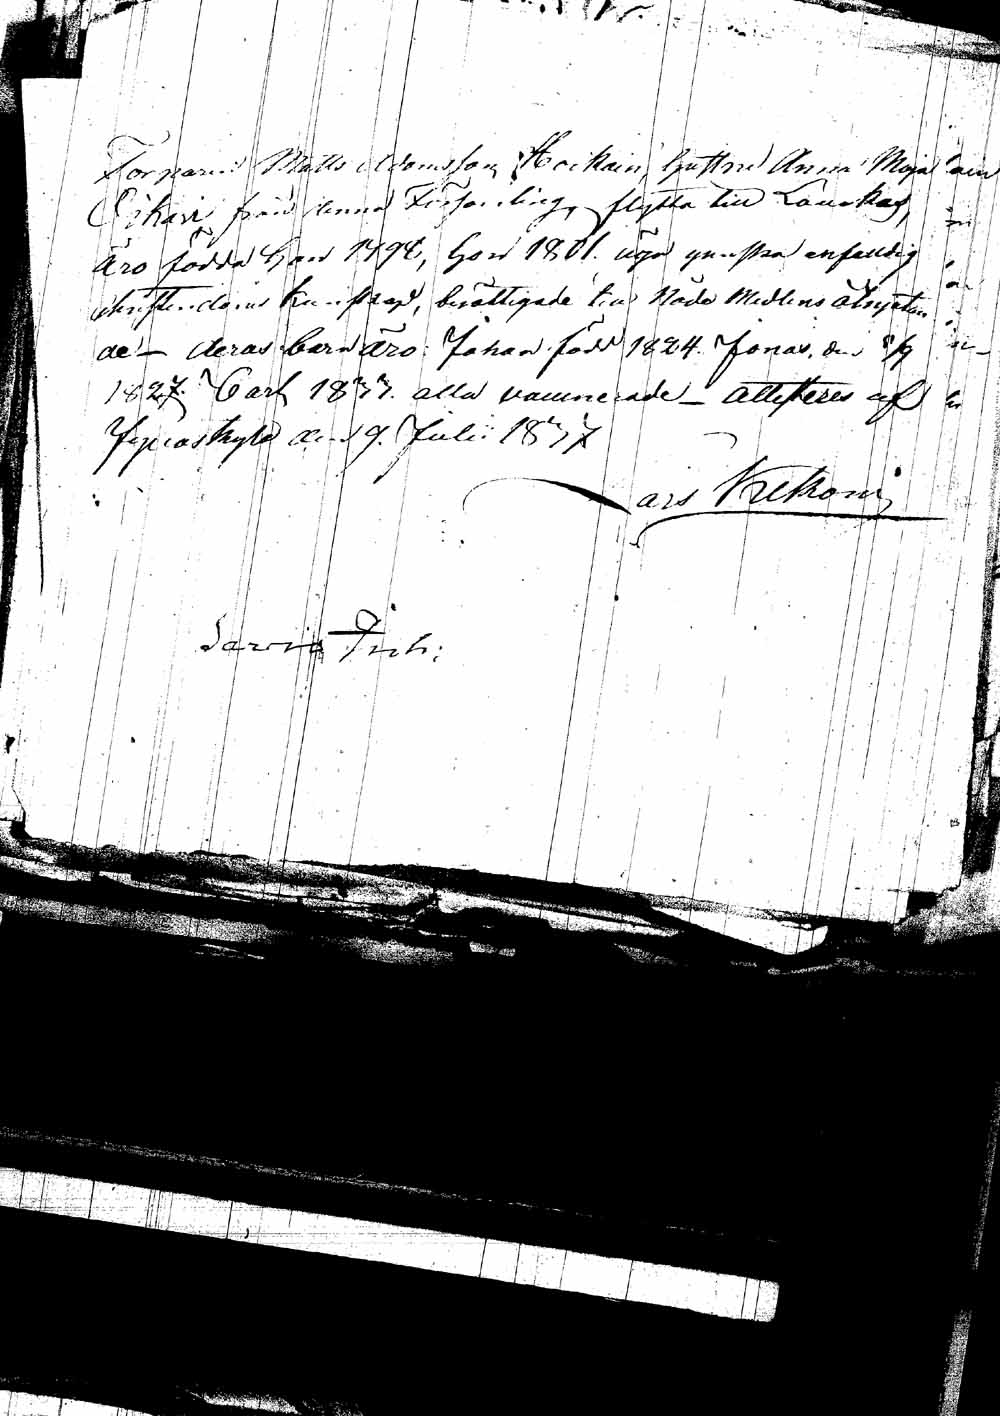 Torparen Matts Adamsson Hoikain, hustru Anna Maja
från denna Församling, flytta till Laukas,
äro födda han 1798, hon 1801. äga ganska enfaldig
christendoms kunskap, berättigade till Nåde Medlens åtnjutan
de — deras barn äro: Johan född 1824. Jonas, den
1827. Carl 1833. alla vaccinerade — Attesteras af
Jyväskylä den 9. Julii 1837
Lars